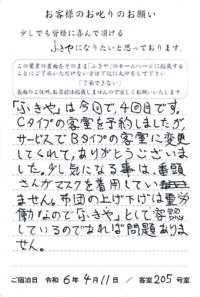 お客様のお叱りのお願い
少しでも皆様に喜んで頂ける
ふきやになりたいと思っております。
この葉書の裏面をそのまま「ふきや」のホームページに掲載する
ことにご了承いただけない方は下記に丸印をして下さい。
「了承できない」
「ふきや」は今回で、4回目です。
Cタイプの客室を予約しましたが、
サービスでBタイプの客室に変更
してくれて、ありがとうございま
した。少し気になる事は、番頭
さんがマスクを着用してい
ません。布団の上げ下げは重労
働なので「ふきや」として容認
しているのであれば問題ありま
せん。
ご宿泊日 令和 6年 4月 11日 / 客室 205号室